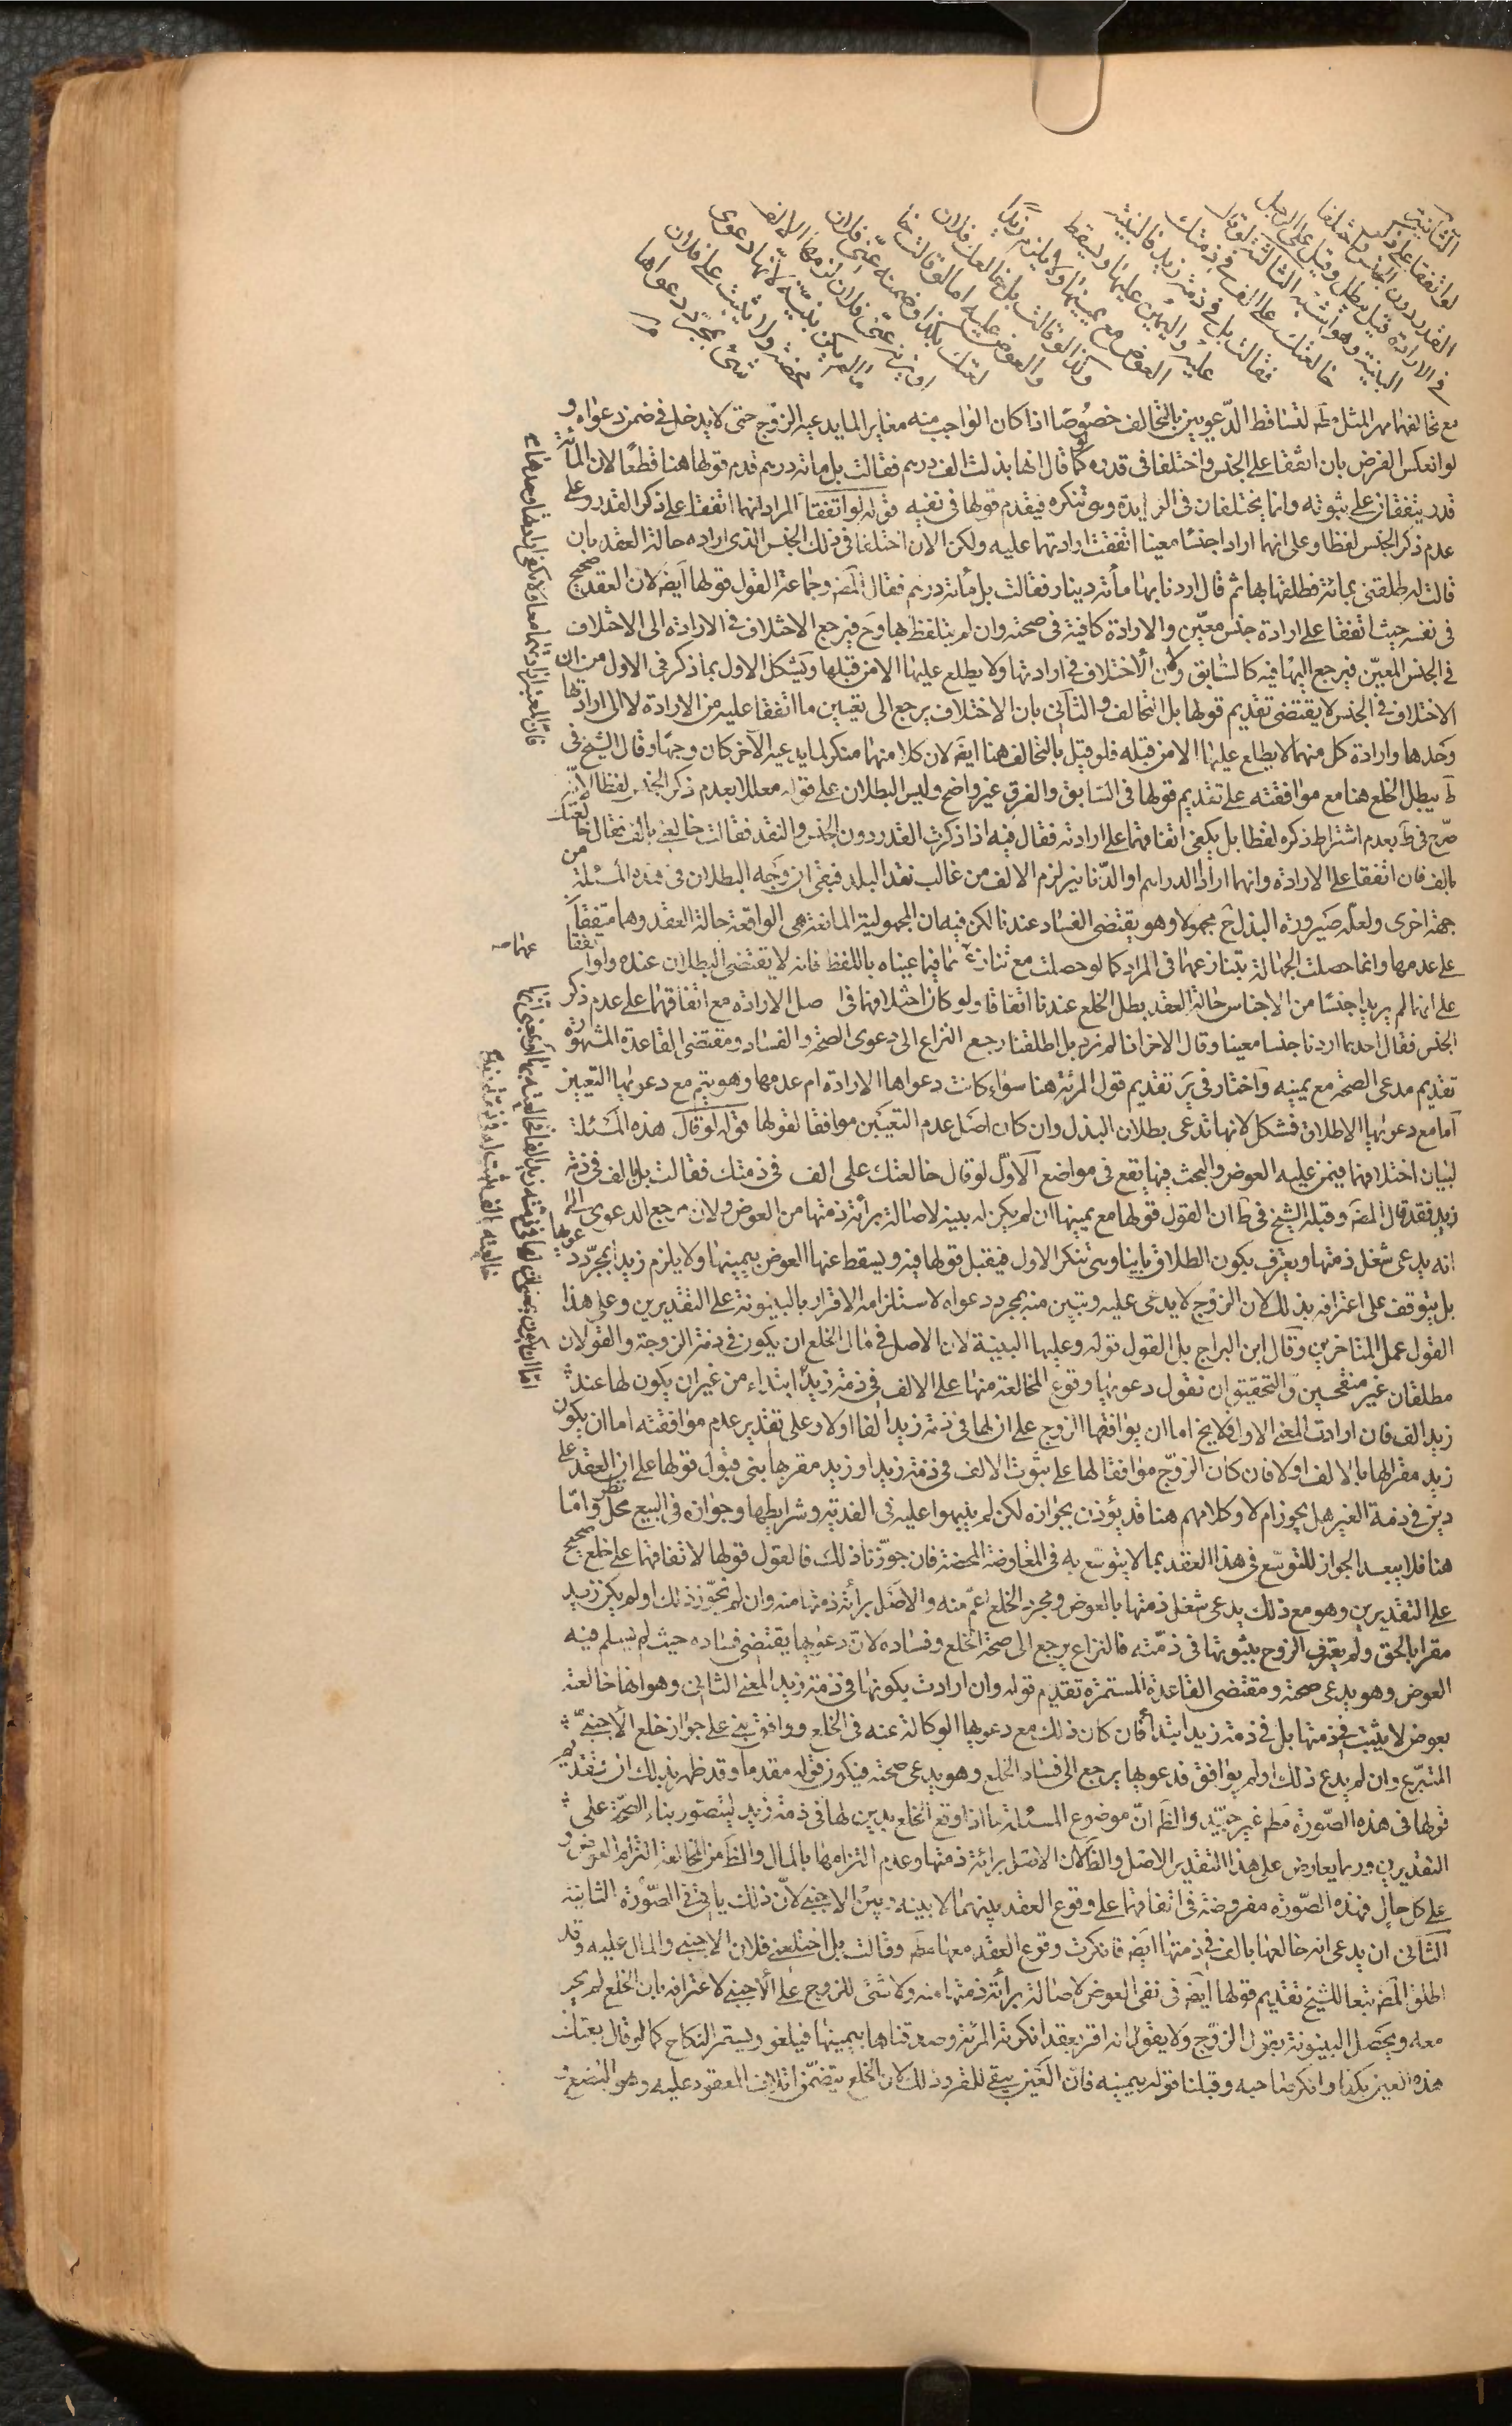 الثانية
لو اتفقا على ذكر
القدر دون الجنس واختلفا
في الارادة قيل يبطل وقيل على الرجل
البينة وهو اشبه الثالثة لو قال
خالعتك على الف في ذمتك
فقالت بل في ذمة زيد فالبينة
عليه واليمين عليها ويسقط
العوض مع يمينها ولا يلزم زيدا
وكذا لو قالت بل خالعك فلان
والعوض عليه اما لو قالت خا
لعتك بكذا وضمنه عني فلان
او يزن عني فلان لزمها الالف
ما لم يكن بينة لانها دعوى
محضة ولا يثبت على فلان
شئ بمجرد دعواها
مع تخالفهما مهر المثل مط لتساقط الدعويين بالتخالف خصوصا اذا كان الواجب منه مغاير لما يدعيه الزوج حتى لا يدخل في ضمن دعواه و
لو انعكس الفرض بان اتفقا على الجنس واختلفا في قدره كما لو قال انها بذلت الف درهم فقالت بل مائة درهم قدم قولها هنا قطعا لان المائة
قدر يتفقان على ثبوته وانما يختلفان في الزايدة وهي تنكره فيقدم قولها في نفيه قوله لو اتفقا المراد انهما اتفقا على ذكر القدر وعلى
عدم ذكر الجنس لفظا وعلى انهما ارادا جنسا معينا اتفقت ارادتهما عليه ولكن الان اختلفا في ذلك الجنس الذي اراده حالة العقد بان
قالت له طلقني بمائة فطلقها بها ثم قال اردنا بها مائة دينار فقالت بل مائة درهم فقال المص وجماعة القول قولها ايض لان العقد صحيح
في نفسه حيث اتفقا على ارادة جنس معين والارادة كافية في صحته وان لم يتلفظ بها وح فيرجع الاختلاف في الارادة الى الاختلاف
في الجنس المعين فيرجع اليها فيه كالسابق ولان الاختلاف في ارادتها ولا يطلع عليها الا من قبلها ويشكل الاول بما ذكر في الاول من ان
الاختلاف في الجنس لا يقتضي تقديم قولها بل التخالف والثاني بان الاختلاف يرجع الى تعيين ما اتفقا عليه من الارادة لا الى ارادتها
وحدها وارادة كل منهما لا يطلع عليها الا من قبله فلو قيل بالتخالف هنا ايض لان كلا منهما منكر لما يدعيه الآخر كان وجها وقال الشيخ في
ط يبطل الخلع هنا مع موافقته على تقديم قولها في السابق والفرق غير واضح وليس البطلان على قوله معللا بعدم ذكر الجنس لفظا لانه
صرح في ط بعدم اشتراط ذكره لفظا بل يكفي اتفاقهما على ارادته فقال فيه اذا ذكرت القدر دون الجنس والنقد فقالت خالعني بالف فقال خالعتك
بالف فان اتفقا على الارادة وانهما ارادا الدراهم او الدنانير لزم الالف من غالب نقد البلد فبقي ان وجه البطلان في هذه المسئلة من
جهة اخرى ولعله صيرورة البذل ح مجهولا وهو يقتضي الفساد عندنا لكن فيه ان المجهولية المانعة هي الواقعة حالة العقد وهما متفقان
على عدمها وانما حصلت الجهالة بتنازعهما في المراد كما لو حصلت مع تنازعهما فيما عيناه باللفظ فانه لا يقتضي البطلان عنده ولو اتفقا
على انهما لم يريدا جنسا من الاجناس حالة العقد بطل الخلع عندنا اتفاقا ولو كان اختلافهما في اصل الارادة مع اتفاقهما على عدم ذكر
الجنس فقال احدهما اردنا جنسا معينا وقال الاخر انا لم نرد بل اطلقنا رجع النزاع الى دعوى الصحة والفساد ومقتضى القاعدة المشهورة
تقديم مدعي الصحة مع يمينه واختار في ير تقديم قول المرئة هنا سواء كانت دعواها الارادة ام عدمها وهو يتم مع دعويها التعيين
اما مع دعويها الاطلاق فشكل لانها تدعي بطلان البذل وان كان اصل عدم التعيين موافقا لقولها قوله لو قال هذه المسئلة
لبيان اختلافهما فيمن عليه العوض والبحث فيها يقع في مواضع الاول لو قال خالعتك على الف في ذمتك فقالت بل بالف في ذمة
زيد فقد قال المص وقبله الشيخ في ط ان القول قولها مع يمينها ان لم يكن له بينة لاصالة برائة ذمتها من العوض ولان مرجع الدعوى الى
انه يدعي شغل ذمتها ويعترف بكون الطلاق باينا وهي تنكر الاول فيقبل قولها فيه ويسقط عنها العوض بيمينها ولا يلزم زيدا بمجرد دعويها
بل يتوقف على اعترافه بذلك لان الزوج لا يدعي عليه وتبين منه بمجرد دعواه لاستلزامه الاقرار بالبينونة على التقديرين وعلى هذا
القول عمل المتاخرين وقال ابن البراج بل القول قوله وعليها البينة لان الاصل في مال الخلع ان يكون في ذمة الزوجة والقولان
مطلقان غير منقحين والتحقيق ان نقول دعويها وقوع المخالعة منها على الالف في ذمة زيد ابتداء من غير ان يكون لها عند
زيد الف فان ارادت المعنى الاول فلا يخ اما ان يوافقها الزوج على ان لها في ذمة زيد الفا اولا وعلى تقدير عدم موافقته اما ان يكون
زيد مقرا لها بالالف اولا فان كان الزوج موافقا لها على ثبوت الالف في ذمة زيد او زيد مقر بها بنى قبول قولها على ان العقد على
دين في ذمة الغير هل يجوز ام لا وكلامهم هنا قد يؤذن بجوازه لكن لم ينبهوا عليه في الفدية وشرايطها وجوازه في البيع محل نظر واما
هنا فلا يبعد الجواز للتوسع في هذا العقد بما لا يتوسع به في المعاوضة المحضة فان جوزنا ذلك فالقول قولها لاتفاقهما على خلع صحيح
على التقديرين وهو مع ذلك يدعي شغل ذمتها بالعوض ومجرد الخلع اعم منه والاصل برائة ذمتها منه وان لم نجوز ذلك او لم يكن زيد
مقرا بالحق ولم يعترف الزوج بثبوتها في ذمته فالنزاع يرجع الى صحة الخلع وفساده لان دعويها يقتضي فساده حيث لم يسلم فيه
العوض وهو يدعي صحته ومقتضى القاعدة المستمرة تقديم قوله وان ارادت بكونها في ذمة زيد المعنى الثاني وهو انها خالعته
بعوض لا يثبت في ذمتها بل في ذمة زيد ابتداء فان كان ذلك مع دعويها الوكالة عنه في الخلع ووافق بنى على جواز خلع الاجنبي
المتبرع وان لم يدع ذلك او لم يوافق فدعويها يرجع الى فساد الخلع وهو يدعي صحته فيكون قوله مقدما وقد ظهر بذلك ان تقديم
قولها في هذه الصورة مط غير جيد والظ ان موضوع المسئلة ما اذا وقع الخلع بدين لها في ذمة زيد ليتصور بناء الصحة على
التقديرين وربما يعارض على هذا التقدير الاصل والظ لان الاصل برائة ذمتها وعدم التزامها بالمال والظ من المخالعة التزام العوض و
على كل حال فهذه الصورة مفروضة في اتفاقهما على وقوع العقد بينهما لا بينه وبين الاجنبي لان ذلك ياتي في الصورة الثانية
الثاني ان يدعي انه خالعها بالف في ذمتها ايض فانكرت وقوع العقد معها مط وقالت بل اختلعني فلان الاجنبي والمال عليه وقد
اطلق المص تبعا للشيخ تقديم قولها ايض في نفي العوض لاصالة برائة ذمتها منه ولا شئ للزوج على الاجنبي لاعترافه بان الخلع لم يجر
معه ويحصل البينونة بقول الزوج ولا يقول انه اقر بعقد انكرته المرئة وصدقناها بيمينها فيلغو ويستمر النكاح كما لو قال بعتك
هذه العين بكذا وانكر صاحبه وقبلنا قوله بيمينه فان العين يبقى للمقر وذلك لان الخلع يتضمن اتلاف المعقود عليه وهو البضع